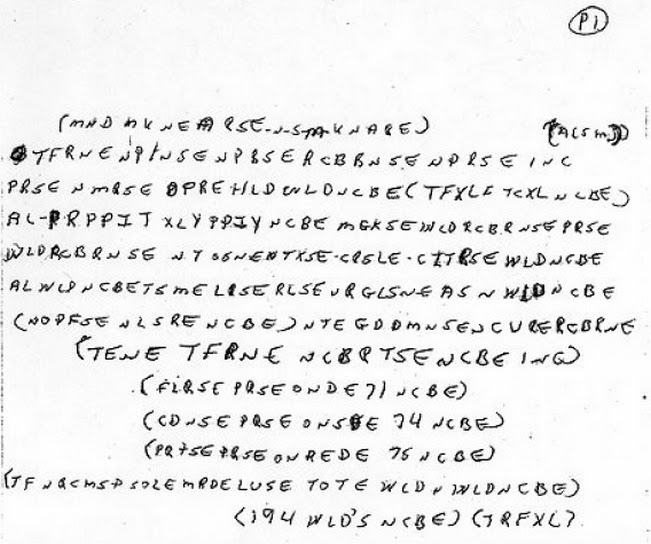 P1
(MND MKNEARSE-N-STAKNARE) (ACSM)
TFRNENPINSENPBSERCBBRNSENPRSEINC
PRSENMRSEOPREHLDWLDNCBE(TFXLFTCXLNCBE)
AL-PRPPITXLYPPIYNCBEMGKSEWLDRCBRNSEPRSE
WLDRCBRNSENTOSNENTXSE-CRSLE-CITRSEWLDNCBE
ALWLDNCBETSMELRSERLSEURGLSNEASNWLDNCBE
(NOPFSENLSRENCBE)NTEGDDMNSENCURERCBRNE
(TENETFRNENCBRTSENCBEING)
(FLRSEPRSEONDE71NCBE)
(CDNSEPRSEONSDE74NCBE)
(PRTSEPRSEONREDE75NCBE)
(TFNQCMSPSOLEMRDELUSETOTEWLDNWLDNCBE)
(194WLD'SNCBE)(TRFXL)